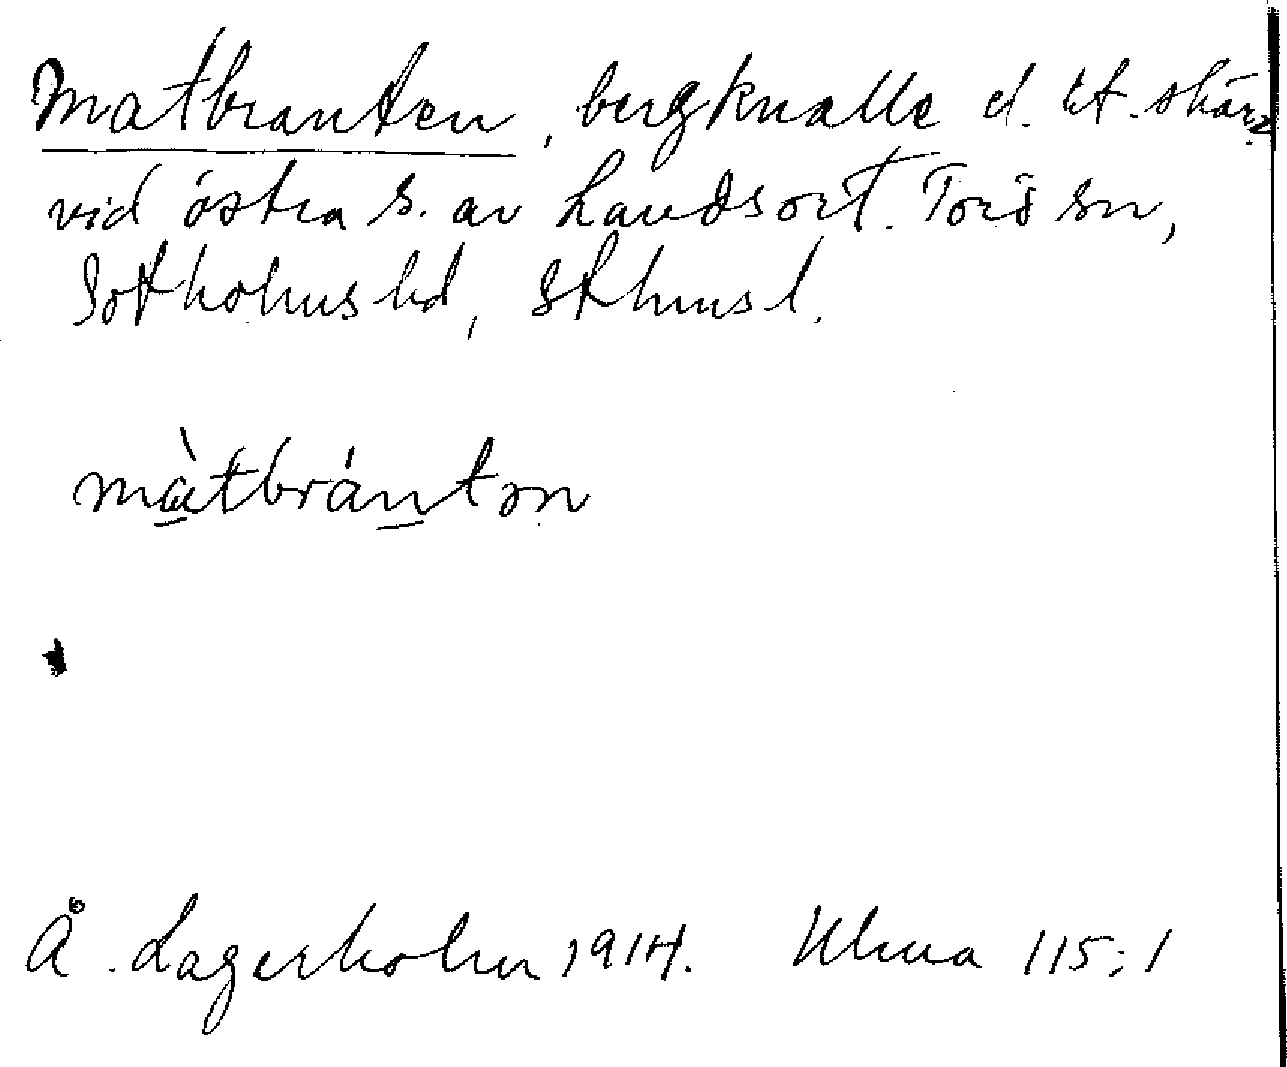 Matbranten, bergknalle el. lit. skär
vid östra s. av Landsort. Torö sn,
Sotholms hd, Sthms l.
màtbránton
Å. Lagerholm 1914. Ulma 115:1